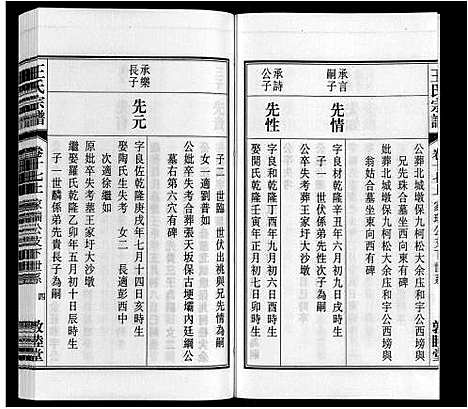 王氏宗譜
公葬北城墩保九柯松大余庄和宇公西塝與
兄先珠合墓坐東向西有碑
妣葬北城墩保九柯松大余庄和宇公西塝與
翁姑合墓坐東向西有碑
承言嗣子
先情
字良 乾隆辛丑年六月初九日戌時生
子一 世伏係弟先性次子為嗣
承詩公子
先性
字良和乾隆癸卯年五月初六日酉時生
公卒失考葬王家圩大沙墩
娶閔氏乾隆壬寅年正月初七日卯時生
敦睦堂
子二 世臨 世伏出桃與兄先情為嗣
女一適劉普如
公妣卒失考合葬張天坂保古埂壩內廷綱公
墓右第六穴有碑
承樂長子
先元
字良佐乾隆庚戌年七月十四日亥時生
娶陶氏生失考 女二 長適彭西中
次適徐繼如
原妣卒失考葬王家圩大沙墩
繼娶羅氏乾隆辛卯年五月初十日辰時生
子一世麟係弟先貴長子為嗣
王氏宗譜
卷
四
敦睦堂